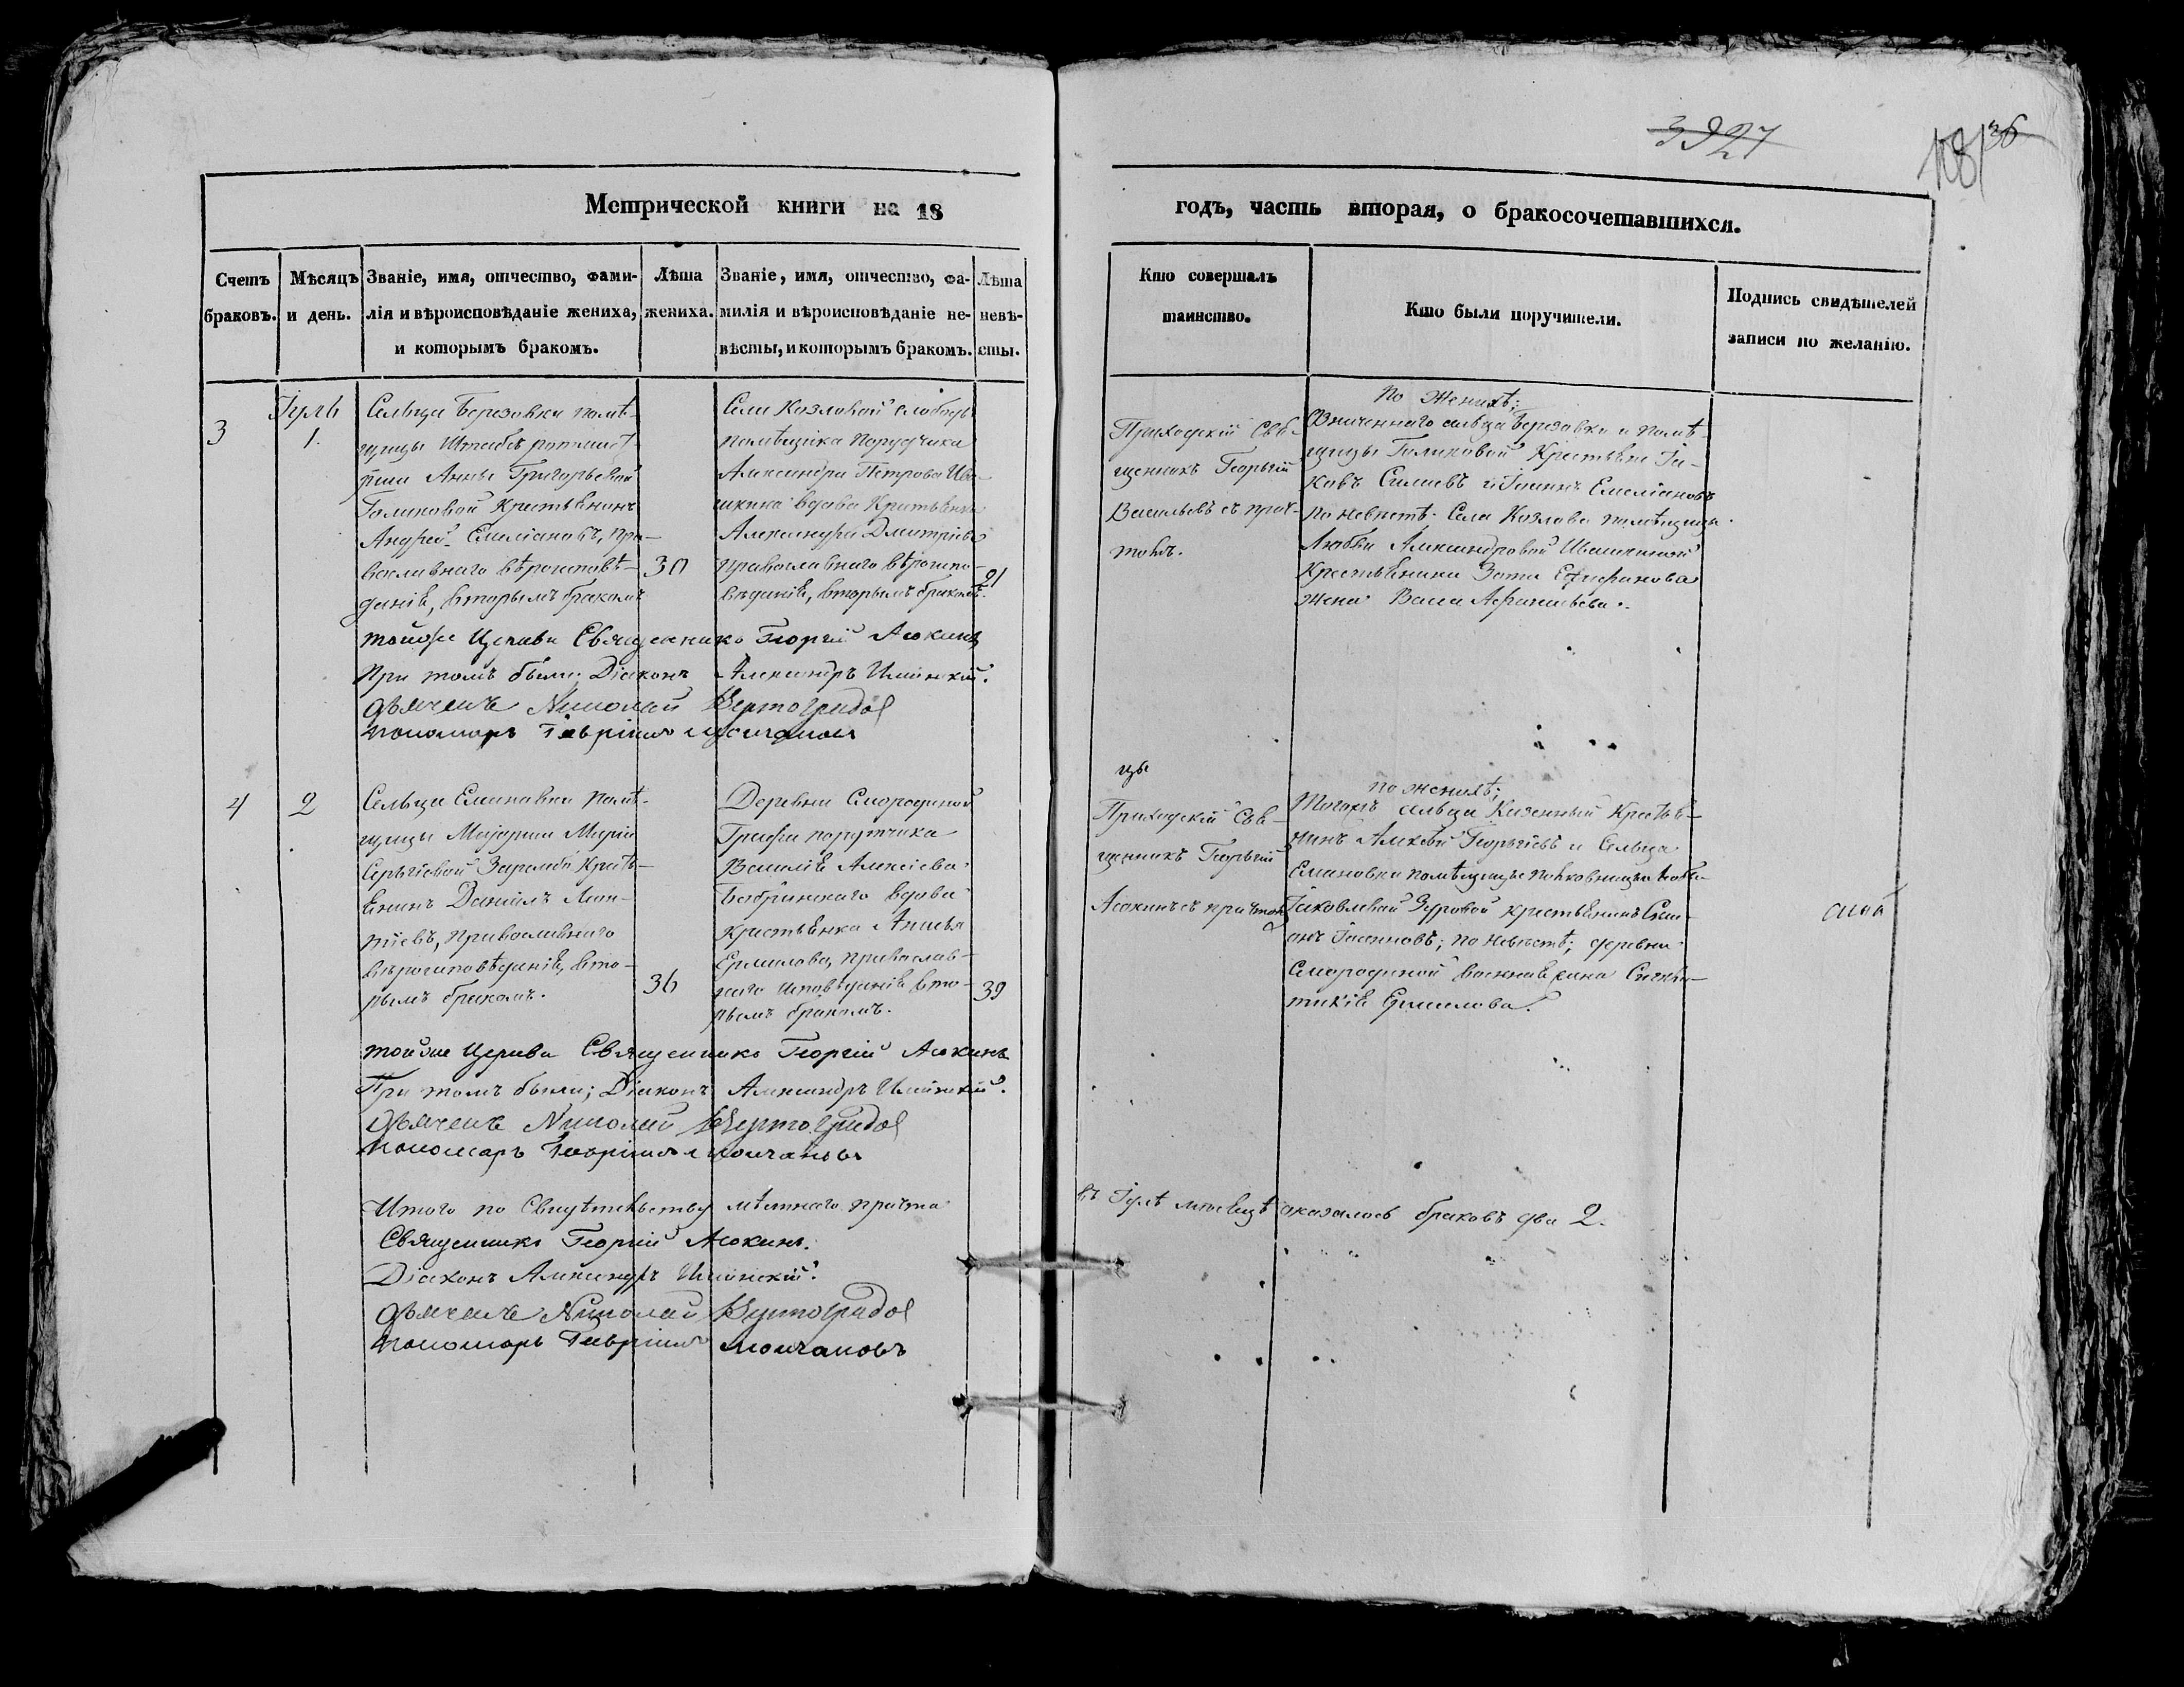 3927
181 36
Метрической книги на 18
годъ, часть вторая, о бракосочетавшихся.
Счетъ браковъ.
Мѣсяцъ и день.
Званіе, имя, отчество, фами-
лія и вѣроисповѣданіе жениха,
и которымъ бракомъ.
Лѣта
жениха.
Званіе, имя, отчество, фа-
милія и вѣроисповѣданіе не-
вѣсты, и которымъ бракомъ.
Лѣта
невѣ-
сты.
Кто совершалъ
таинство.
Кто были поручители.
Подпись свидѣтелей
записи по желанію.
3
Іуль
1.
Сельца Березовки помѣ-
щицы Штабсъ ротмист
рши Анны Григорьевой
Голиковой Крестьянинъ
Андрей Емеліановъ, пра-
вославнаго вѣроисповѣ-
даніѣ, вторымъ бракомъ
30
Села Козловой слободы
помѣщика Порутчика
Александра Петрова Ива-
шкина вдова Крестьянка
Александра Дмитріева
православнаго вѣроиспо-
вѣданіѣ, вторымъ бракомъ.
21
Приходскій Свя-
щенникъ Георгій
Васильевъ съ прич-
томъ.
По Женихѣ;
Означеннаго сельца Березовки и помѣ-
щицы Голиковой Крестьяне Іа-
ковъ Силаевъ и Іоаннъ Емеліановъ
По невѣстѣ. Села Козлова помѣщицы
Любви Александровой Ивашкиной
Крестьянина Зота Епифанова
жена Васса Афанасьева.
тойже Церкви Священникъ Георгій Асокинъ
При томъ были; Діаконъ Александръ Ильинскій.
дьячекъ Николай Вертоградов
пономарь Гавріилъ Молчановъ
4
2
Сельца Емановки помѣ-
щицы Маіорши Маріи
Сергіевой Крестья-
Енинъ Даніилъ
православнаго
вѣроисповѣданіѣ, вто-
рымъ бракомъ.
36
Деревни Смородиной
Графа порутчика
Василіѣ Алексіева
Бобринскаго вдова
крестьянка Анисья
Ермилова, православ-
наго исповѣданіѣ вто-
рымъ бракомъ.
39
Приходскій Свя-
щенникъ Георгій
Асокинъ съ причтомъ
по женихѣ;
Тогожъ сельца Казенный Крестья-
нинъ Алексѣй Георгіевъ и Сельца
Емановки помѣщицы полковницы
Іаковлевой Зуровой крестьянинъ Сим-
онъ Іоанновъ; по невѣстѣ; деревни
Смородиной
Ермилова.
тойже Церкви Священникъ Георгій Асокинъ
При томъ были; Діаконъ Александръ Ильинскій.
дьячекъ Николай Вертоградов
пономарь Гавріилъ Молчановъ
Итого по Свидѣтельству мѣстнаго причта
въ Іулѣ мѣсяцѣ оказалось браковъ два 2.
Священникъ Георгій Асокинъ.
Діаконъ Александръ Ильинскій.
дьячекъ Николай Вертоградов
пономарь Гавріилъ Молчановъ